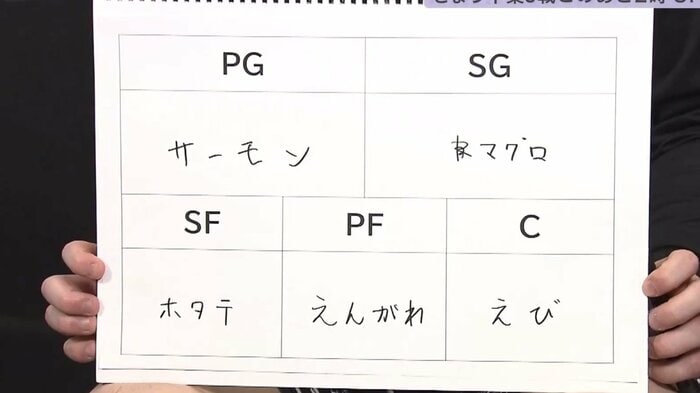 PG
SG
サーモン
マグロ
SF
PF
C
ホタテ
えんがわ
えび